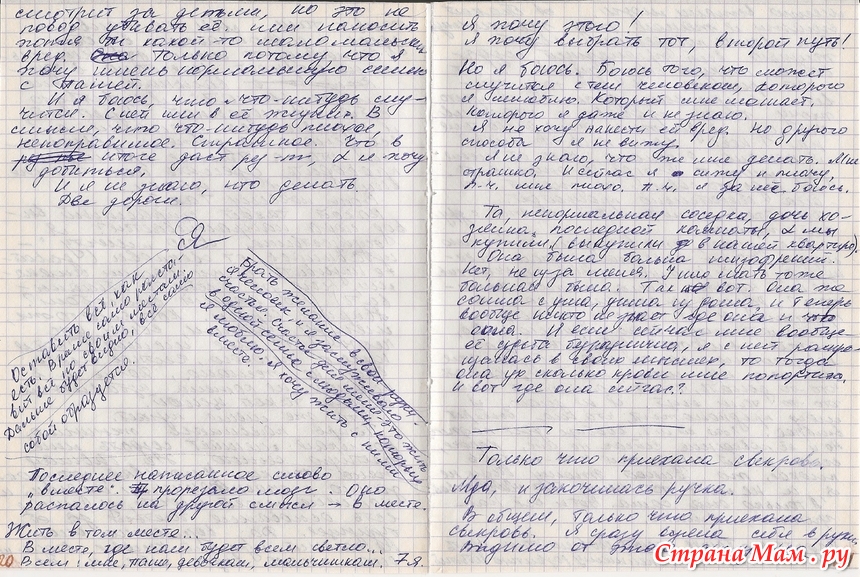 смотрит за детьми, но это не
повод убивать её. или наносить
хотя бы какой-то самомаленький
вред. Только потому что я
хочу иметь нормальную семью
с Пашей.
И я боюсь, что что-нибудь слу-
чится. С ней или в её жизни. В
смысле, что что-нибудь плохое,
непоправимое. Страшное. Что в
итоге даст рез-т, к я хочу
добиться.
И я не знаю, что делать
Две дороги.
Я
Оставить всё, как
есть. Время само расста-
вит всё по своим местам.
Дальше будет видно, всё само
собой образуется.
Брать желание в свои руки.
Я человек, и я заслуживаю
счастья. Счастье для меня это жить
в одной семье с людьми, которых
я люблю. Я хочу жить с ними
вместе.
Последнее написанное слово
"вместе". прорезало мозг. Оно
распалось на другой смысл → в месте.
Жить в том месте...
В месте, где нам будет всем светло...
Всем: мне, Паше, девочкам, мальчишкам. 7-я.
20
Я хочу этого!
Я хочу выбрать тот, второй путь!
Но я боюсь. Боюсь того, что может
случится с тем человеком, которого
я не люблю. Который мне мешает.
которого я даже и не знаю.
Я не хочу нанести ей вред. Но другого
способа я не вижу.
Я не знаю, что же мне делать. Мне
страшно. И сейчас я сижу и плачу,
п.ч. мне плохо. п.ч. я за неё боюсь.
Та, ненормальная соседка, дочь хо-
зяина последней комнаты, к мы
купили (выкупили в нашей квартире).
Она была больна шизофренией.
Нет, не из-за меня. У нее мать тоже
больная была. Так вот. Она же
сошла с ума, ушла из дома, и теперь
вообще никто не знает где она и что
она. И если сейчас мне вообще
её судьба безразлична, я с ней распро-
щалась в своих мыслях, то тогда
она ух сколько крови мне попортила.
И вот где она сейчас?
Только что приехала свекровь.
Мда, и закончилась ручка.
В общем, только что приехала
свекровь. Я сразу взяла себя в руки.
Видимо от
Страна Мам.ру